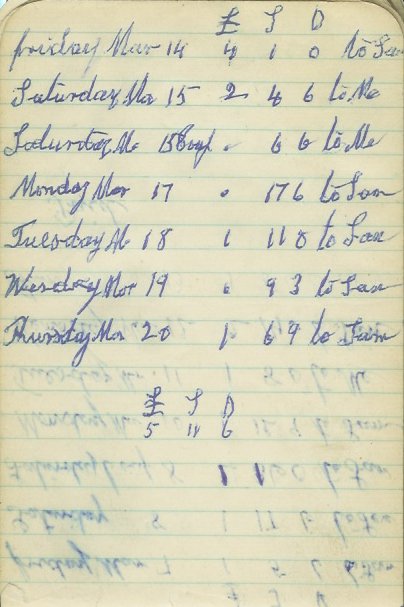 £ S D
friday Mar 14 4 1 0 to Sam
Saturday Ma 15 2 4 6 to Me
Saturday Ma 15 . 6 6 to Me
Monday Mar 17 . 17 6 to Sam
Tuesday Ma 18 1 11 0 to Sam
Wesday Mar 19 . 9 3 to Sam
Thursday Mar 20 1 6 9 to Sam
£ S D
5 11 6
1 1